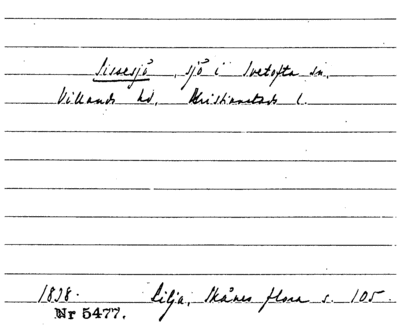 Sissesjö, sjö i Ivetofta sn.
Villands hd. Kristianstads l.
1838. Lilja, Skånes flora s. 105.
Nr 5477.